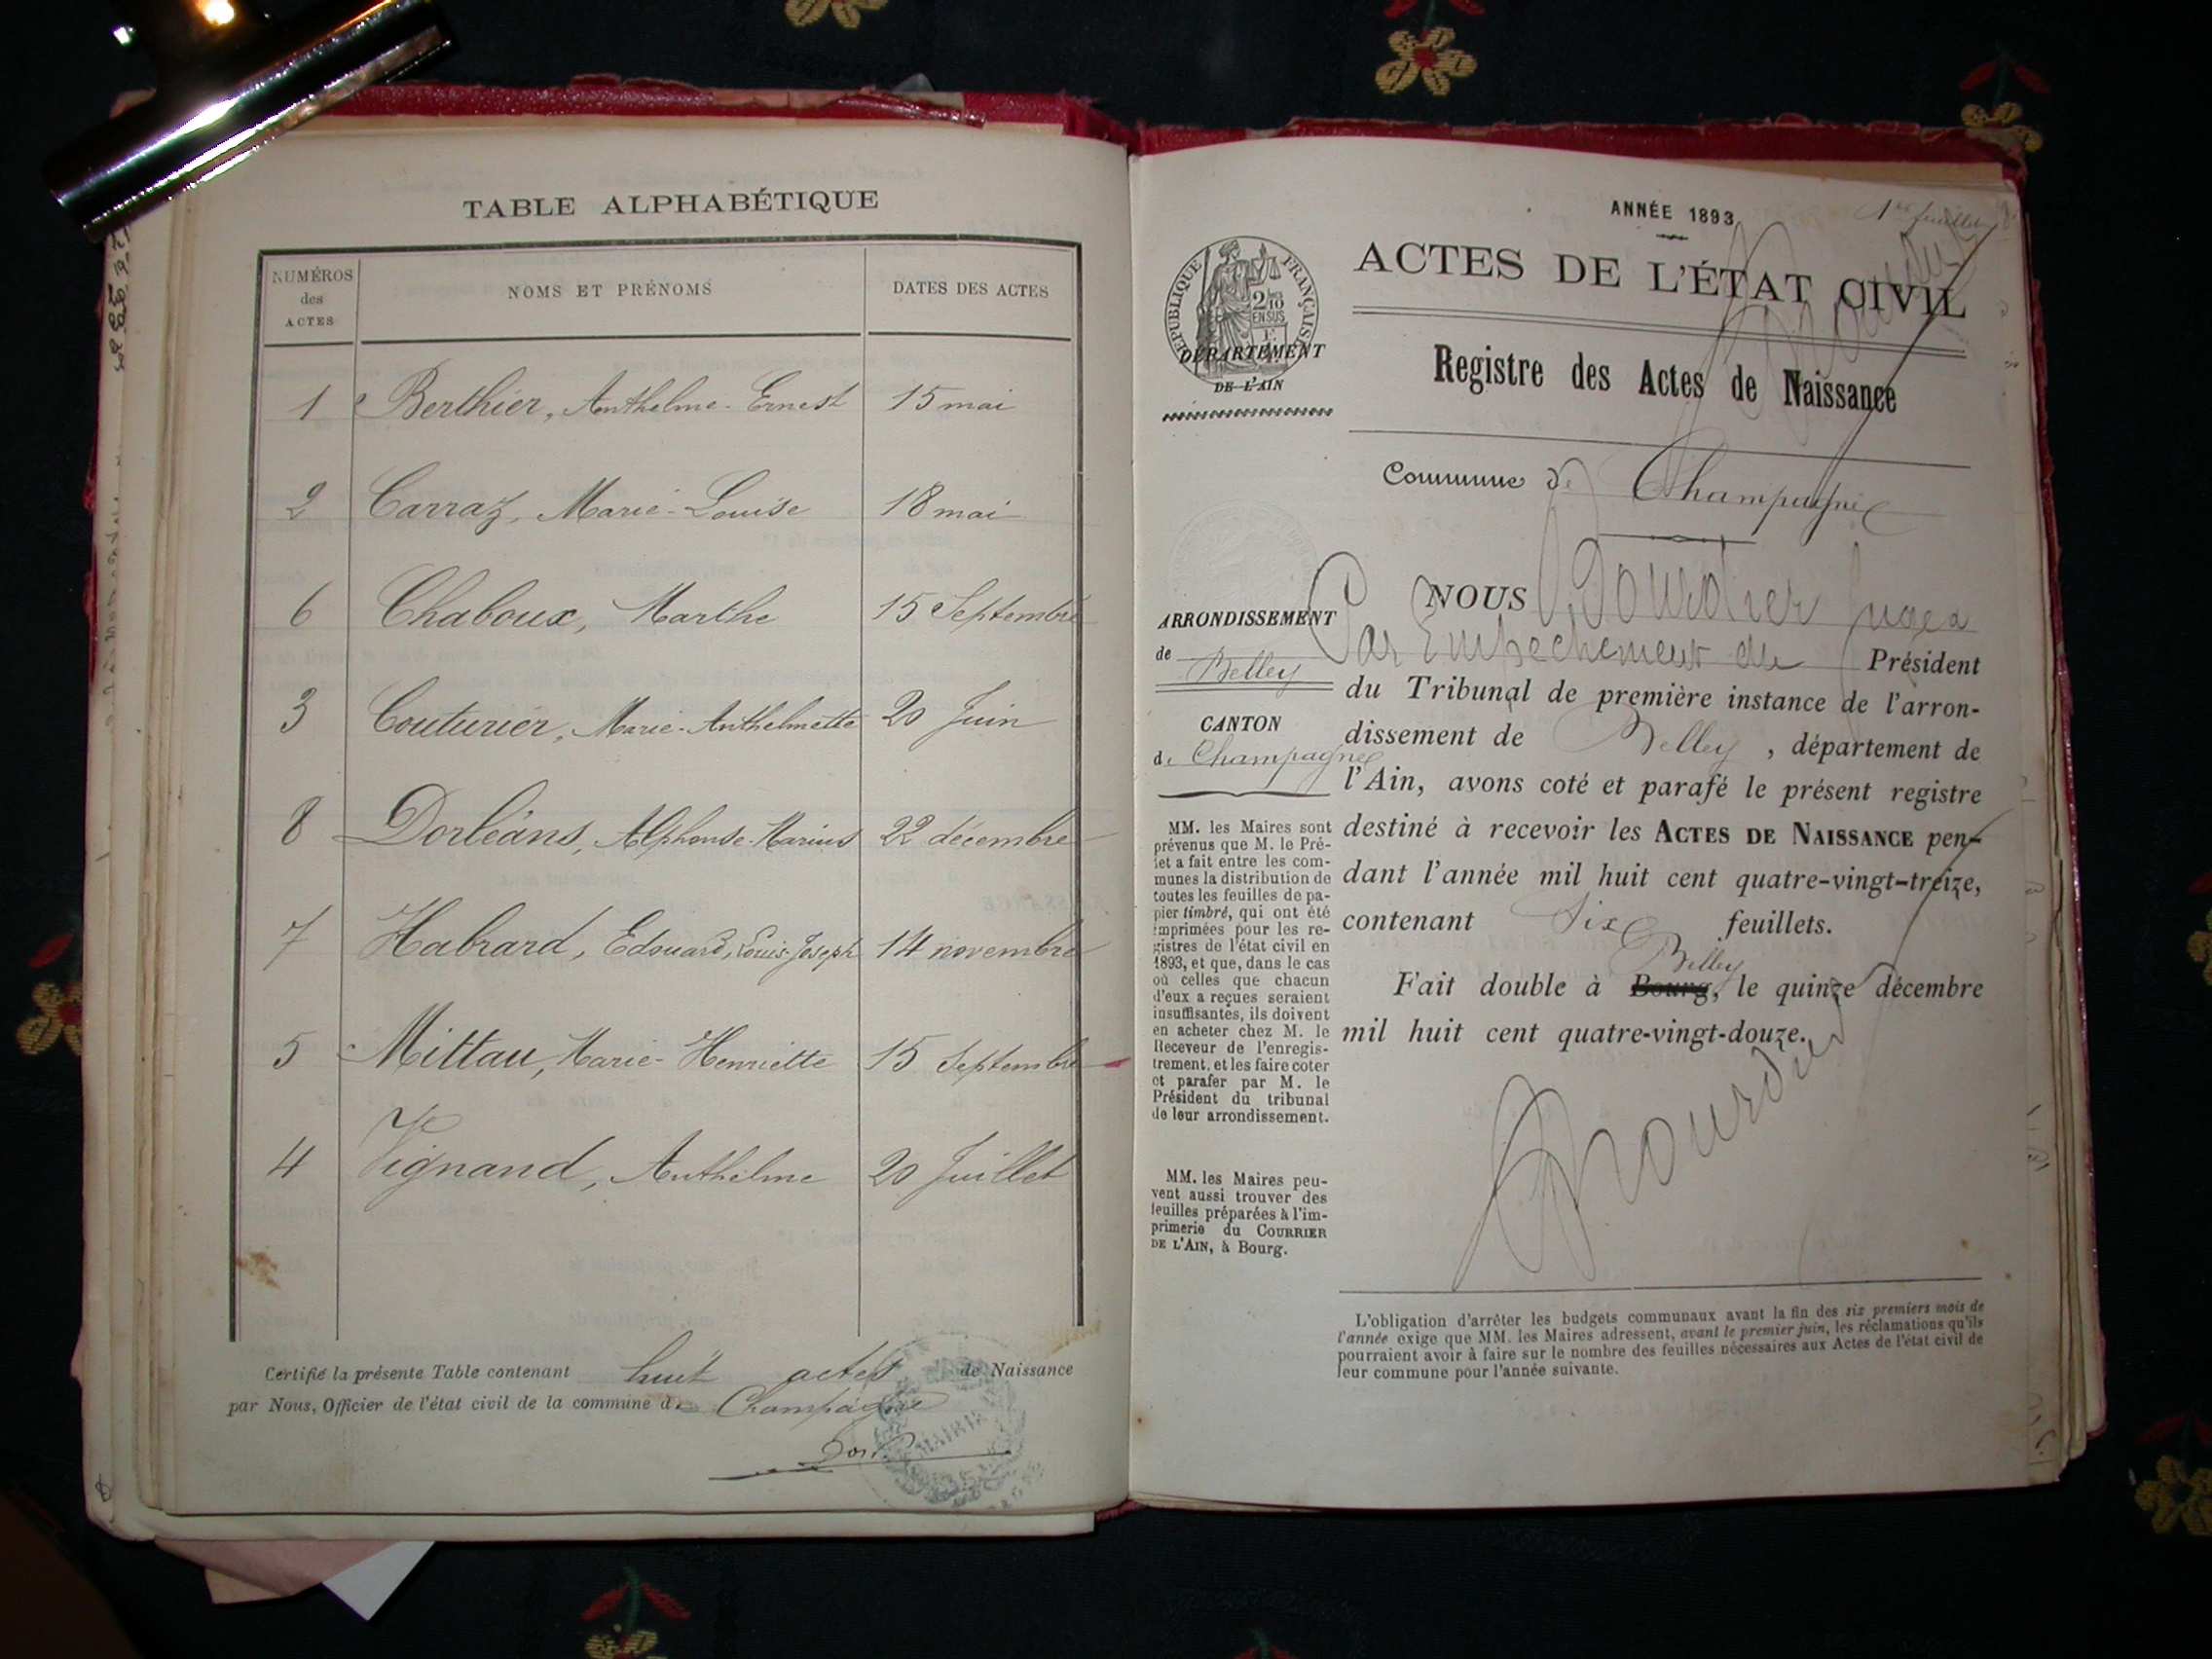 TABLE ALPHABÉTIQUE
NUMÉROS
des
ACTES
NOMS ET PRÉNOMS
DATES DES ACTES
1 Berthier, Anthelme-Ernest 15 mai
2 Carraz, Marie-Louise 18 mai
6 Chaboux, Marthe 15 Septembre
3 Couturier, Marie-Anthelmette 20 Juin
8 Dorléans, Alphonse-Marius 22 décembre
7 Habrard, Edouard, Louis-Joseph 14 novembre
5 Mittau, Marie-Henriette 15 Septembre
4 Vignand, Anthelme 20 Juillet
Certifié la présente Table contenant huit actes de Naissance
par Nous, Officier de l'état civil de la commune de Champagne
MAIRIE
ANNÉE 1893
1er feuillet
ACTES DE L'ÉTAT CIVIL
RÉPUBLIQUE FRANÇAISE
2/10
EN SUS
DÉPARTEMENT
DE L'AIN
Registre des Actes de Naissance
Commune de Champagne
ARRONDISSEMENT
de Belley
CANTON
de Champagne
MM. les Maires sont
prévenus que M. le Pré-
fet a fait entre les com-
munes la distribution de
toutes les feuilles de pa-
pier timbré, qui ont été
imprimées pour les re-
gistres de l'état civil en
1893, et que, dans le cas
où celles que chacun
d'eux a reçues seraient
insuffisantes, ils doivent
en acheter chez M. le
Receveur de l'enregis-
trement, et les faire coter
et parafer par M. le
Président du tribunal
de leur arrondissement.
MM. les Maires peu-
vent aussi trouver des
feuilles préparées à l'im-
primerie du COURRIER
DE L'AIN, à Bourg.
NOUS Bourdier Juge
Par Empechement du Président
du Tribunal de première instance de l'arron-
dissement de Belley, département de
l'Ain, avons coté et parafé le présent registre
destiné à recevoir les ACTES DE NAISSANCE pen-
dant l'année mil huit cent quatre-vingt-treize,
contenant Six feuillets.
Belley
Fait double à Bourg, le quinze décembre
mil huit cent quatre-vingt-douze.
Bourdier
L'obligation d'arrêter les budgets communaux avant la fin des six premiers mois de
l'année exige que MM. les Maires adressent, avant le premier juin, les réclamations qu'ils
pourraient avoir à faire sur le nombre des feuilles nécessaires aux Actes de l'état civil de
leur commune pour l'année suivante.